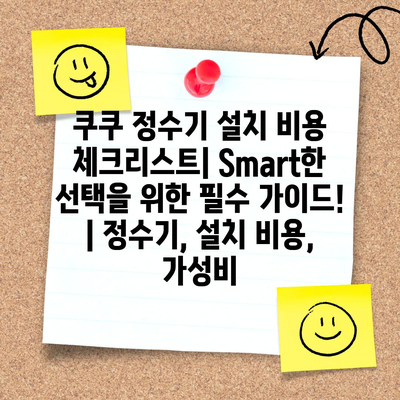 쿠쿠 정수기 설치 비용
체크리스트| Smart한
선택을 위한 필수 가이드!
| 정수기, 설치 비용,
가성비